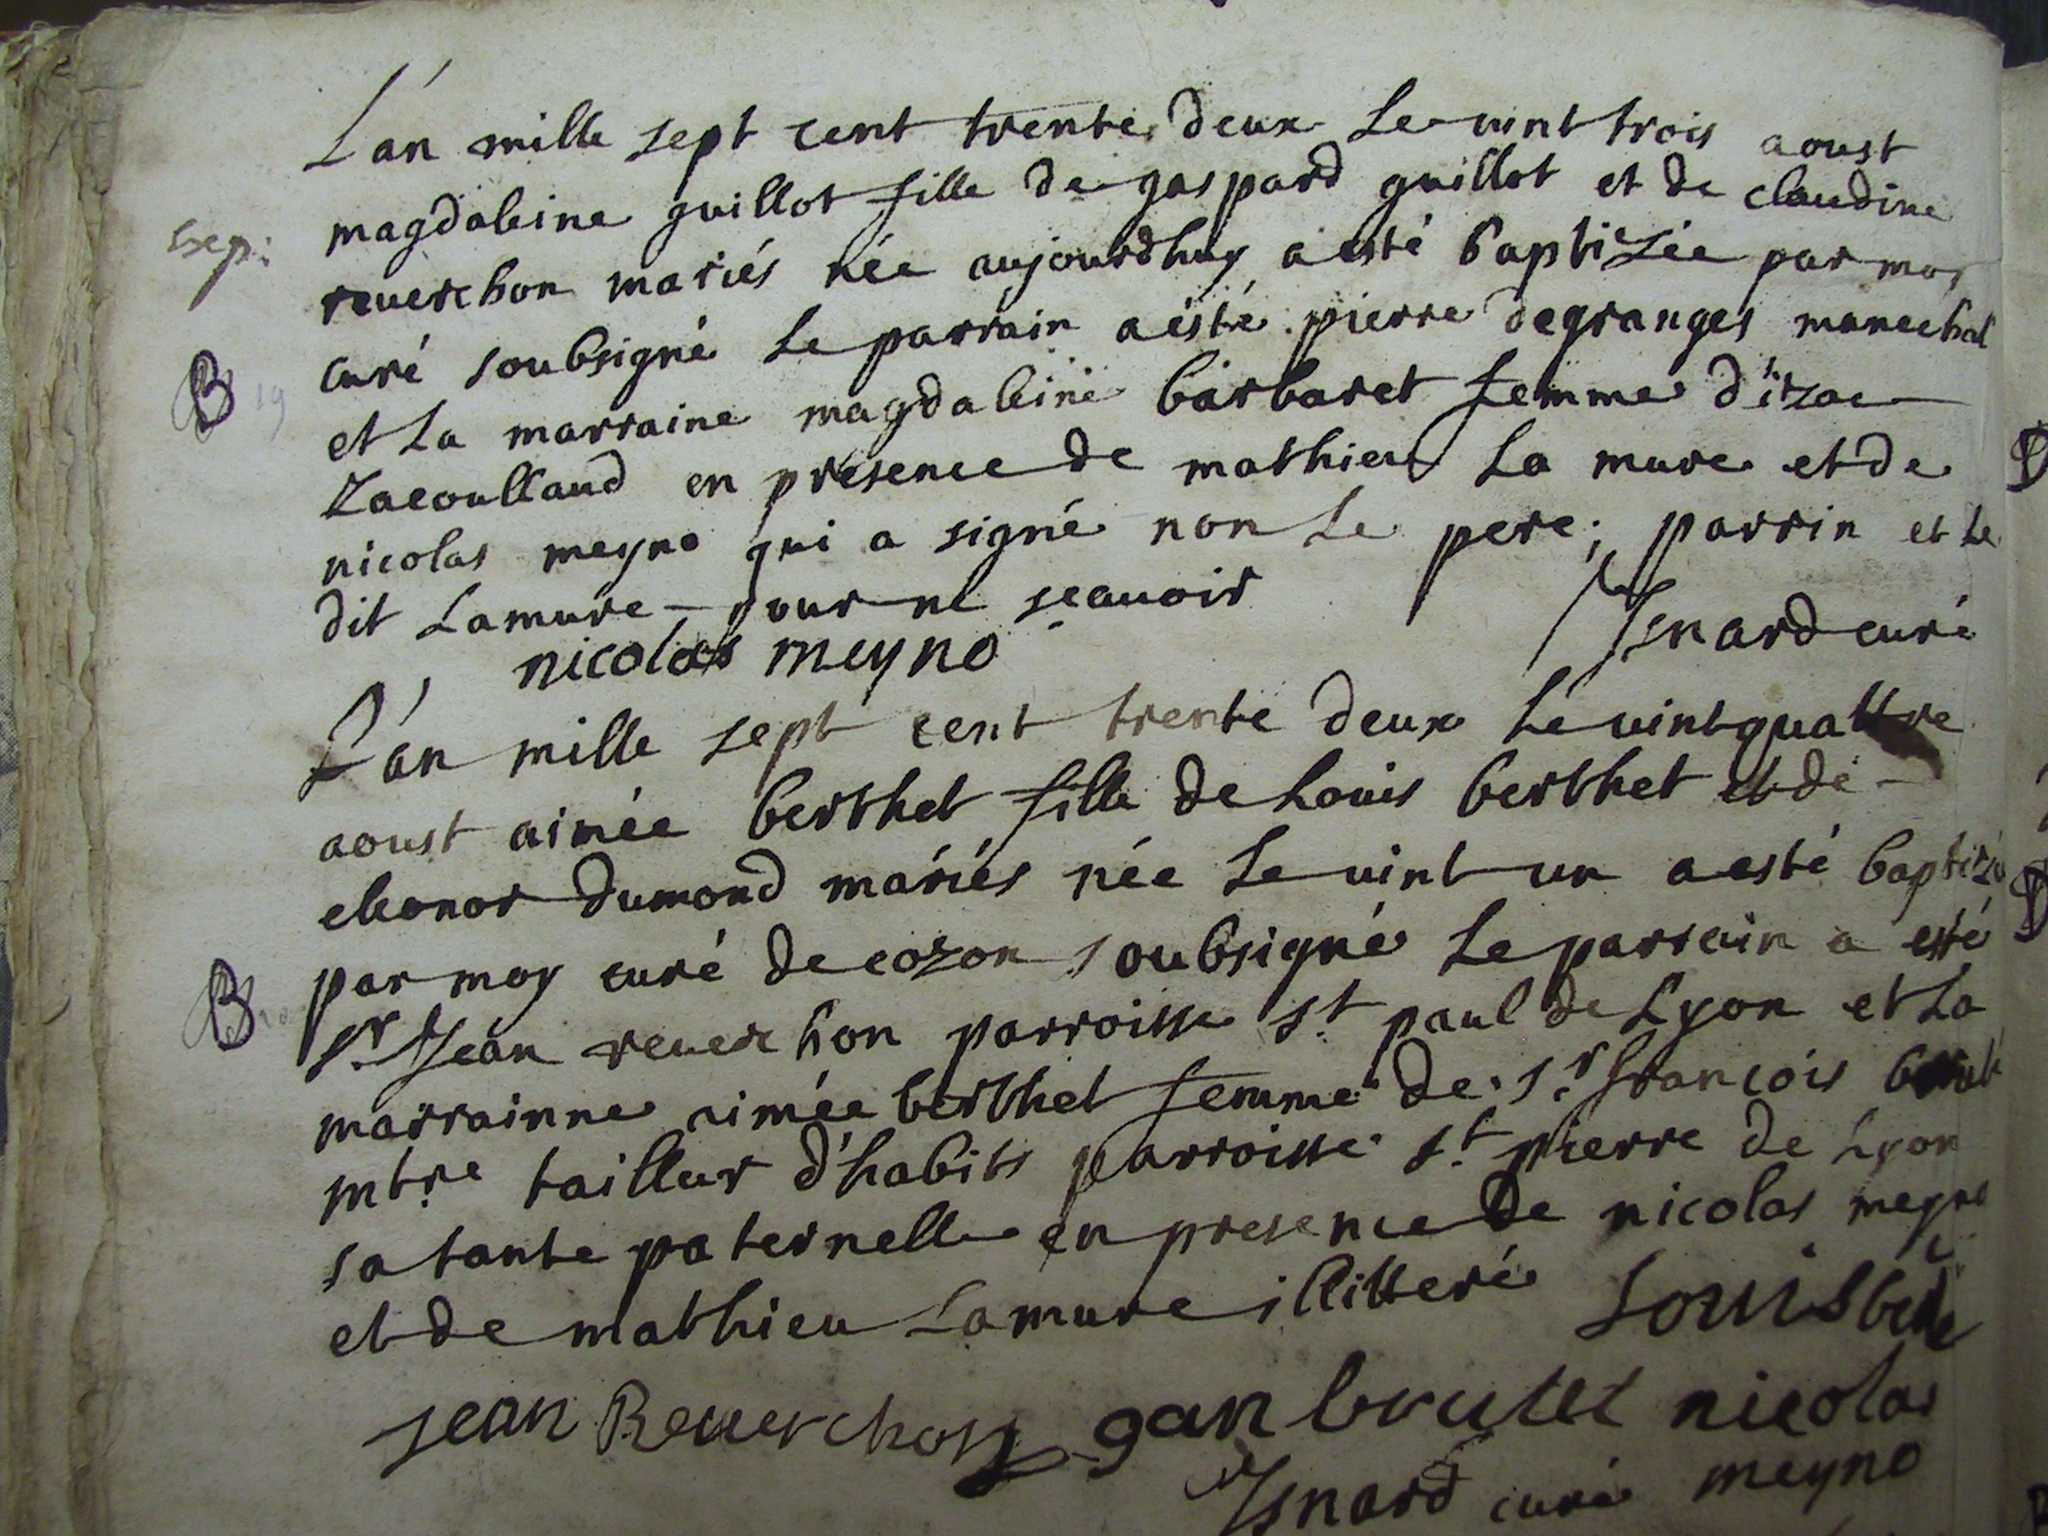 L'an mille sept cent trente deux le vint trois aoust
magdaleine guillot fille de gaspard guillot et de claudine
reverchon mariés née aujourdhuy a esté baptizée par moy
curé soubsigné le parrain a esté pierre degranges marechal
et la marraine magdaleine barbaret femme d'izac
Zacoullaud en presence de mathieu la mure et de
nicolas meyno qui a signé non le pere, parrin et le
dit Lamure pour ne sçavoir
nicolas meyno Isnard curé
L'an mille sept cent trente deux le vint quattre
aoust aimée berthet fille de Louis berthet et de
eleonor dumond mariés née le vint un a esté
B
par moy curé de cozon soubsigné le parrain a esté
Sr. Jean reverchon parroisse St. paul de Lyon et la
marrainne aimée berthet femme de Sr. françois
mtre tailleur d'habits parroisse St. pierre de Lyon
sa tante paternelle en presence de nicolas meyno
et de mathieu Lamure illitteré Louis
jean Reverchon gan brutet nicolas
Isnard curé meyno